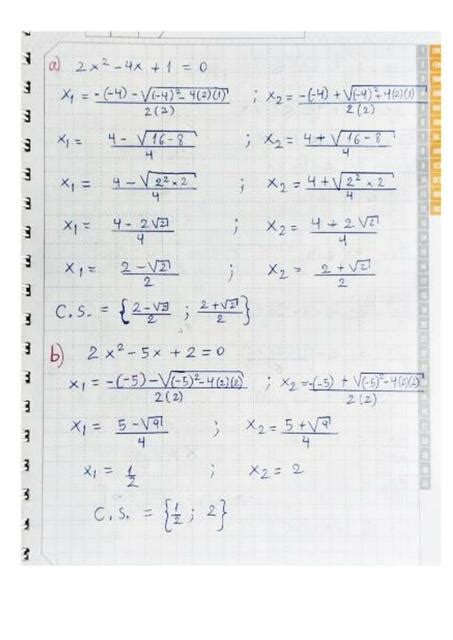 a) 2x² - 4x + 1 = 0
x₁ = -(-4) - √((-4)² - 4(2)(1)) / 2(2) ; x₂ = -(-4) + √((-4)² + 4(2)(1)) / 2(2)
x₁ = 4 - √(16 - 8) / 4 ; x₂ = 4 + √(16 - 8) / 4
x₁ = 4 - √(2² × 2) / 4 ; x₂ = 4 + √(2² × 2) / 4
x₁ = 4 - 2√2 / 4 ; x₂ = 4 + 2√2 / 4
x₁ = 2 - √2 / 2 ; x₂ = 2 + √2 / 2
C.S. = {2 - √2 / 2 ; 2 + √2 / 2}
b) 2x² - 5x + 2 = 0
x₁ = -(-5) - √((-5)² - 4(2)(2)) / 2(2) ; x₂ = -(-5) + √((-5)² - 4(2)(2)) / 2(2)
x₁ = 5 - √9 / 4 ; x₂ = 5 + √9 / 4
x₁ = 1/2 ; x₂ = 2
C.S. = {1/2 ; 2}